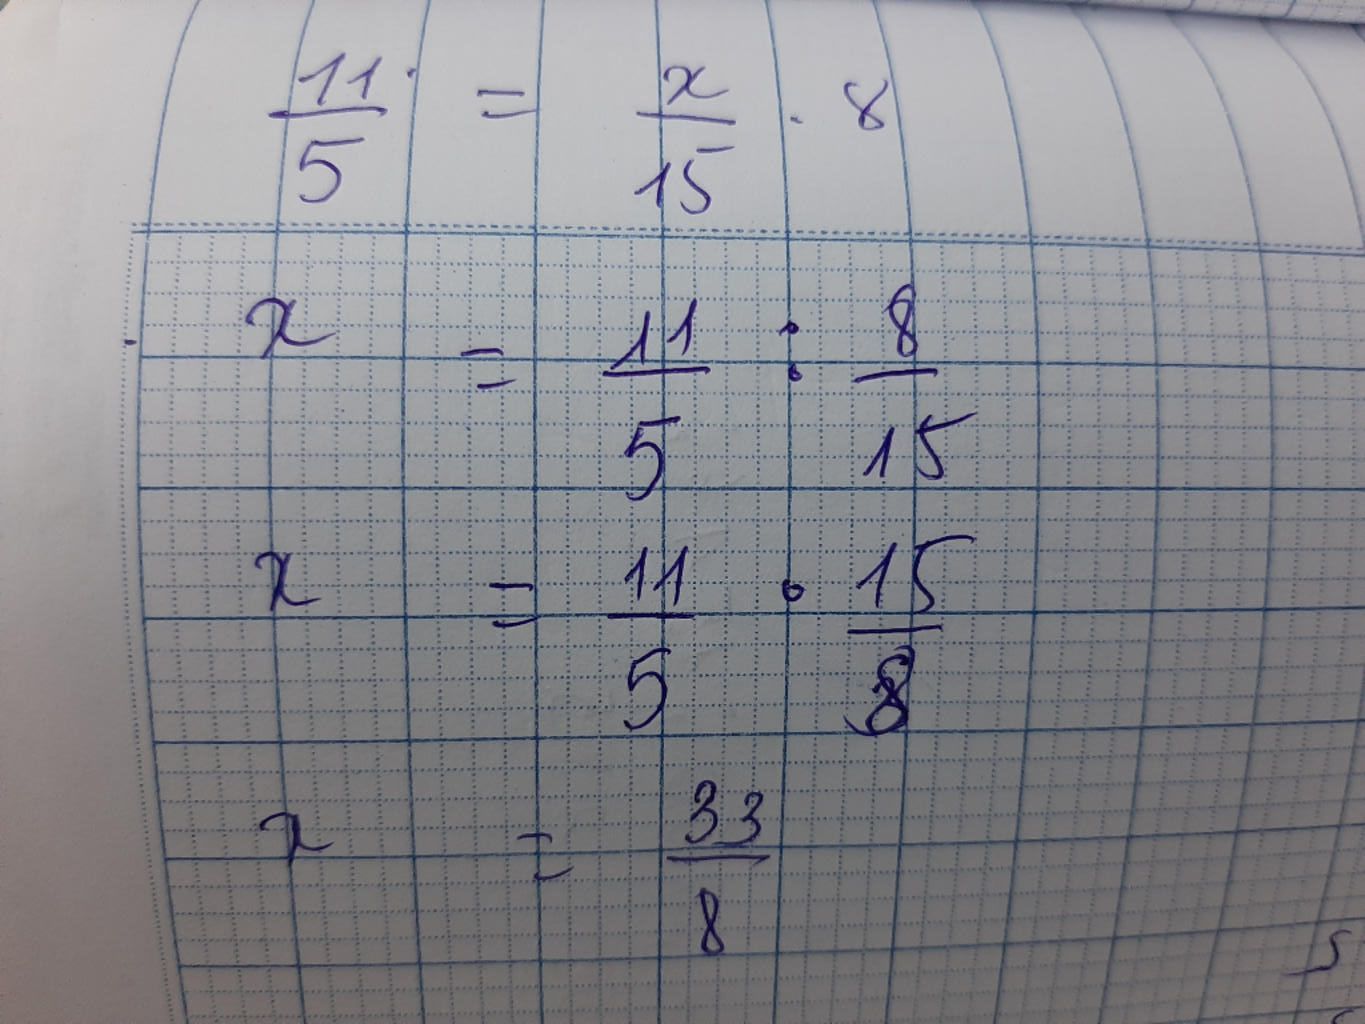 11/5 = x/15 . 8
x = 11/5 : 8/15
x = 11/5 . 15/8
x = 33/8
5